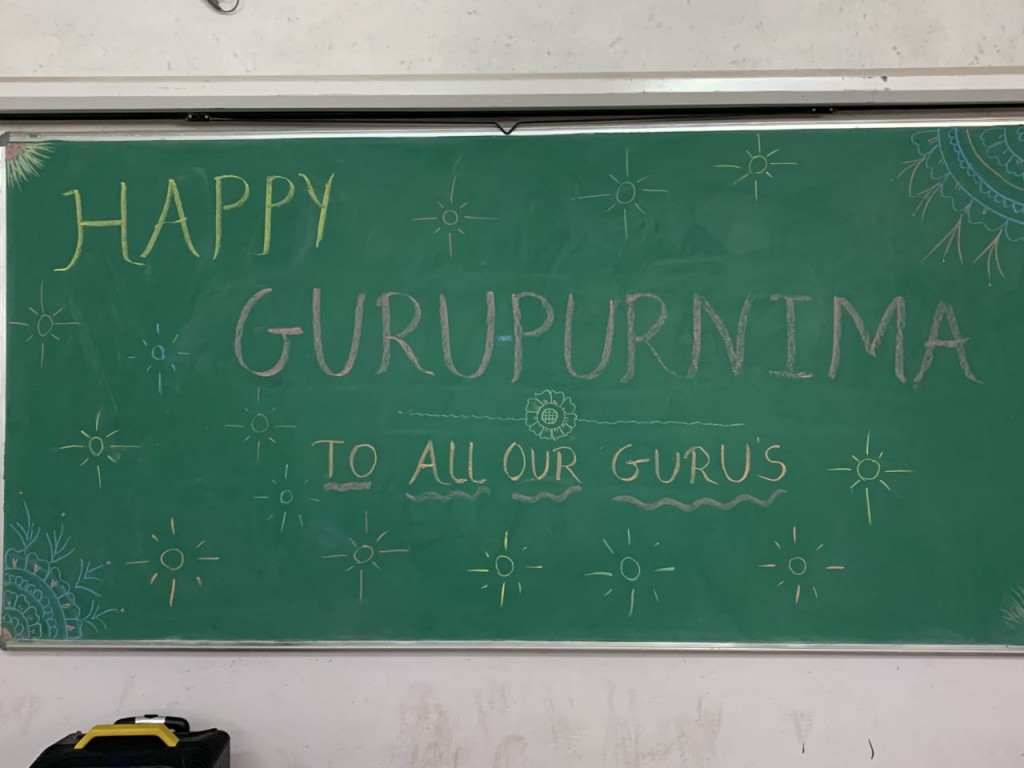 HAPPY
GURUPURNIMA
TO ALL OUR GURU'S